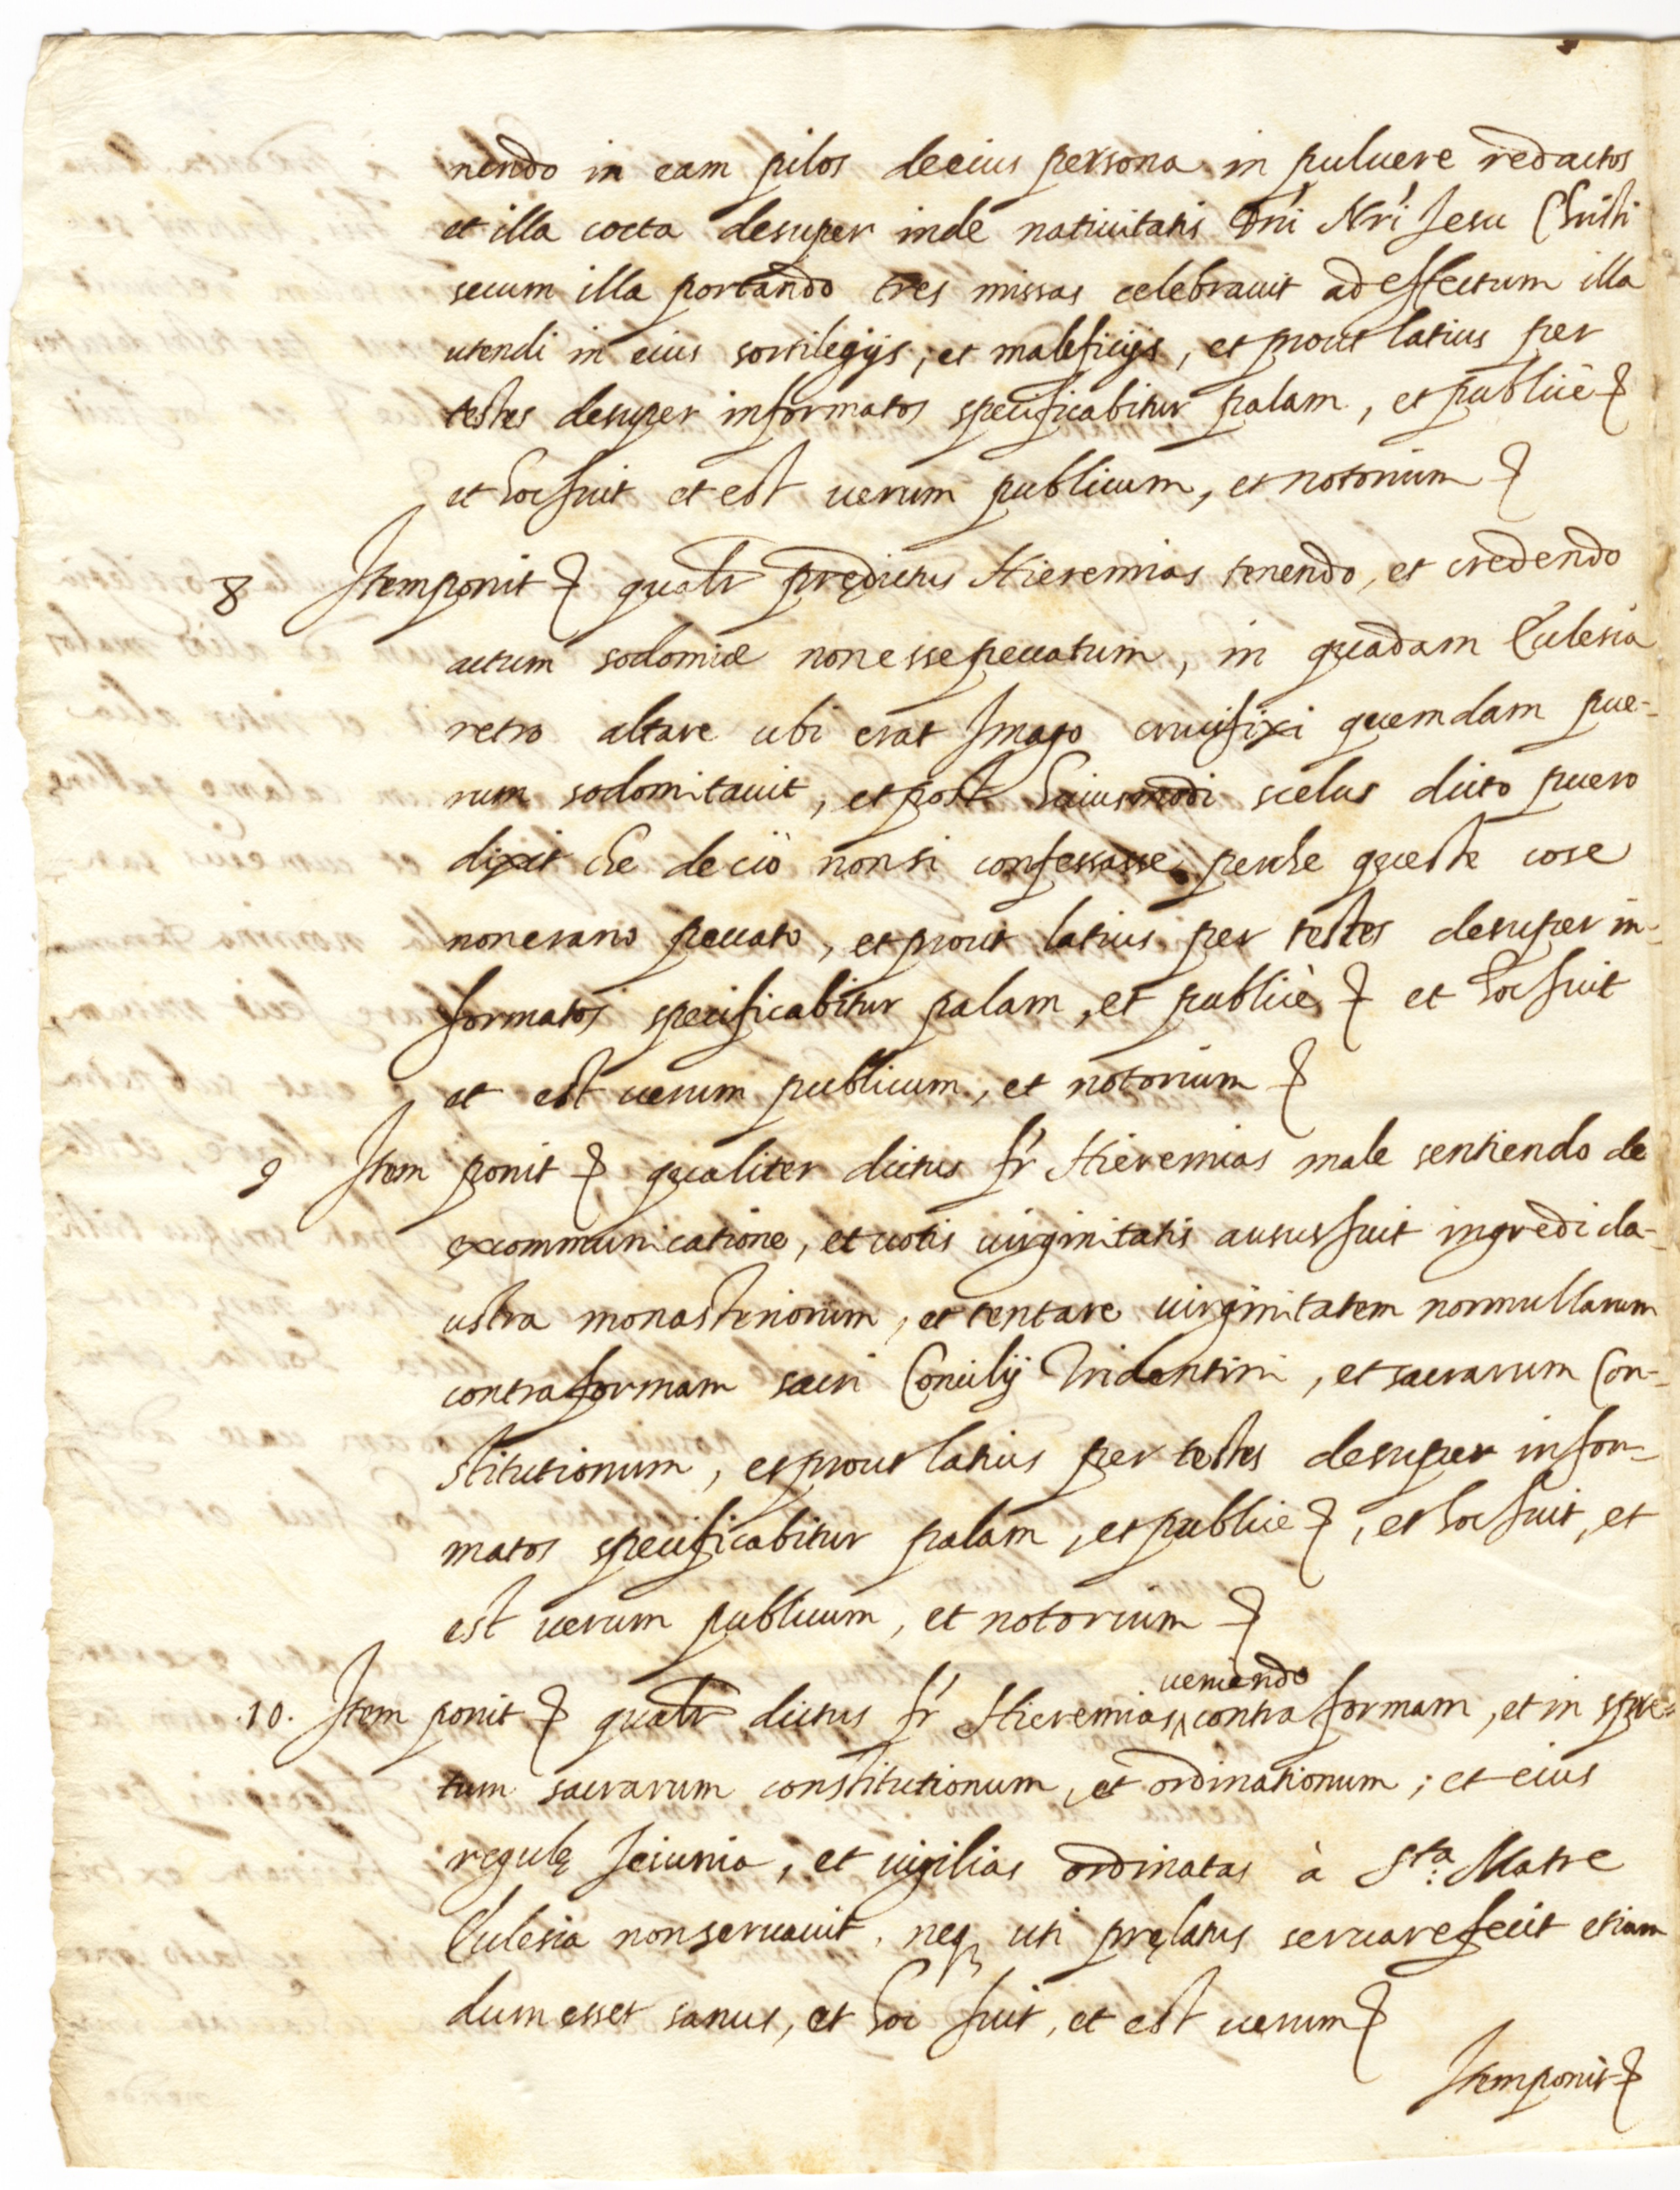 nendo in eam pilos de eius persona in puluere redactos
et illa cocta desuper in die natiuitatis Dni Nri Jesu Christi
secum illa portando tres missas celebrauit ad effectum illa
utendi in eius sortilegijs, et maleficijs, et prout latius per
testes desuper informatos specificabitur palam, et publicè &
et hoc fuit et est uerum publicum, et notorium &
8 Item ponit & qualr prędictus Hieremias tenendo, et credendo
actum sodomiæ non esse peccatum, in quadam Ecclesia
retro altare ubi erat Imago crucifixi quemdam pue-
rum sodomitauit, et post huiusmodi scelus dicto puero
dixit che de ciò non si confessasse perche queste cose
non erano peccato, et prout latius per testes desuper in-
formatos specificabitur palam, et publicè & et hoc fuit
et est uerum publicum, et notorium &
9 Item ponit & qualiter dictus fr Hieremias male sentiendo de
excommunicatione, et uotis uirginitatis ausus fuit ingredi cla-
ustra monasteriorum, et tentare uirginitatem nonnullarum
contra formam sacri Concilij Tridentini, et sacrarum Con-
stitutionum, et prout latius per testes desuper infor-
matos specificabitur palam, et publice &, et hoc fuit, et
est uerum publicum, et notorium &
ueniendo
.10. Item ponit & qualr dictus fr Hieremias contra formam, et in spre-
tum sacrarum constitutionum, et ordinationum; et eius
regulę Jeiunia, et uigilias ordinatas à Sta: Matre
Ecclesia non seruauit, neq uti pręlatus seruare fecit etiam
dum esset sanus, et hoc fuit, et est uerum &
Item ponit &